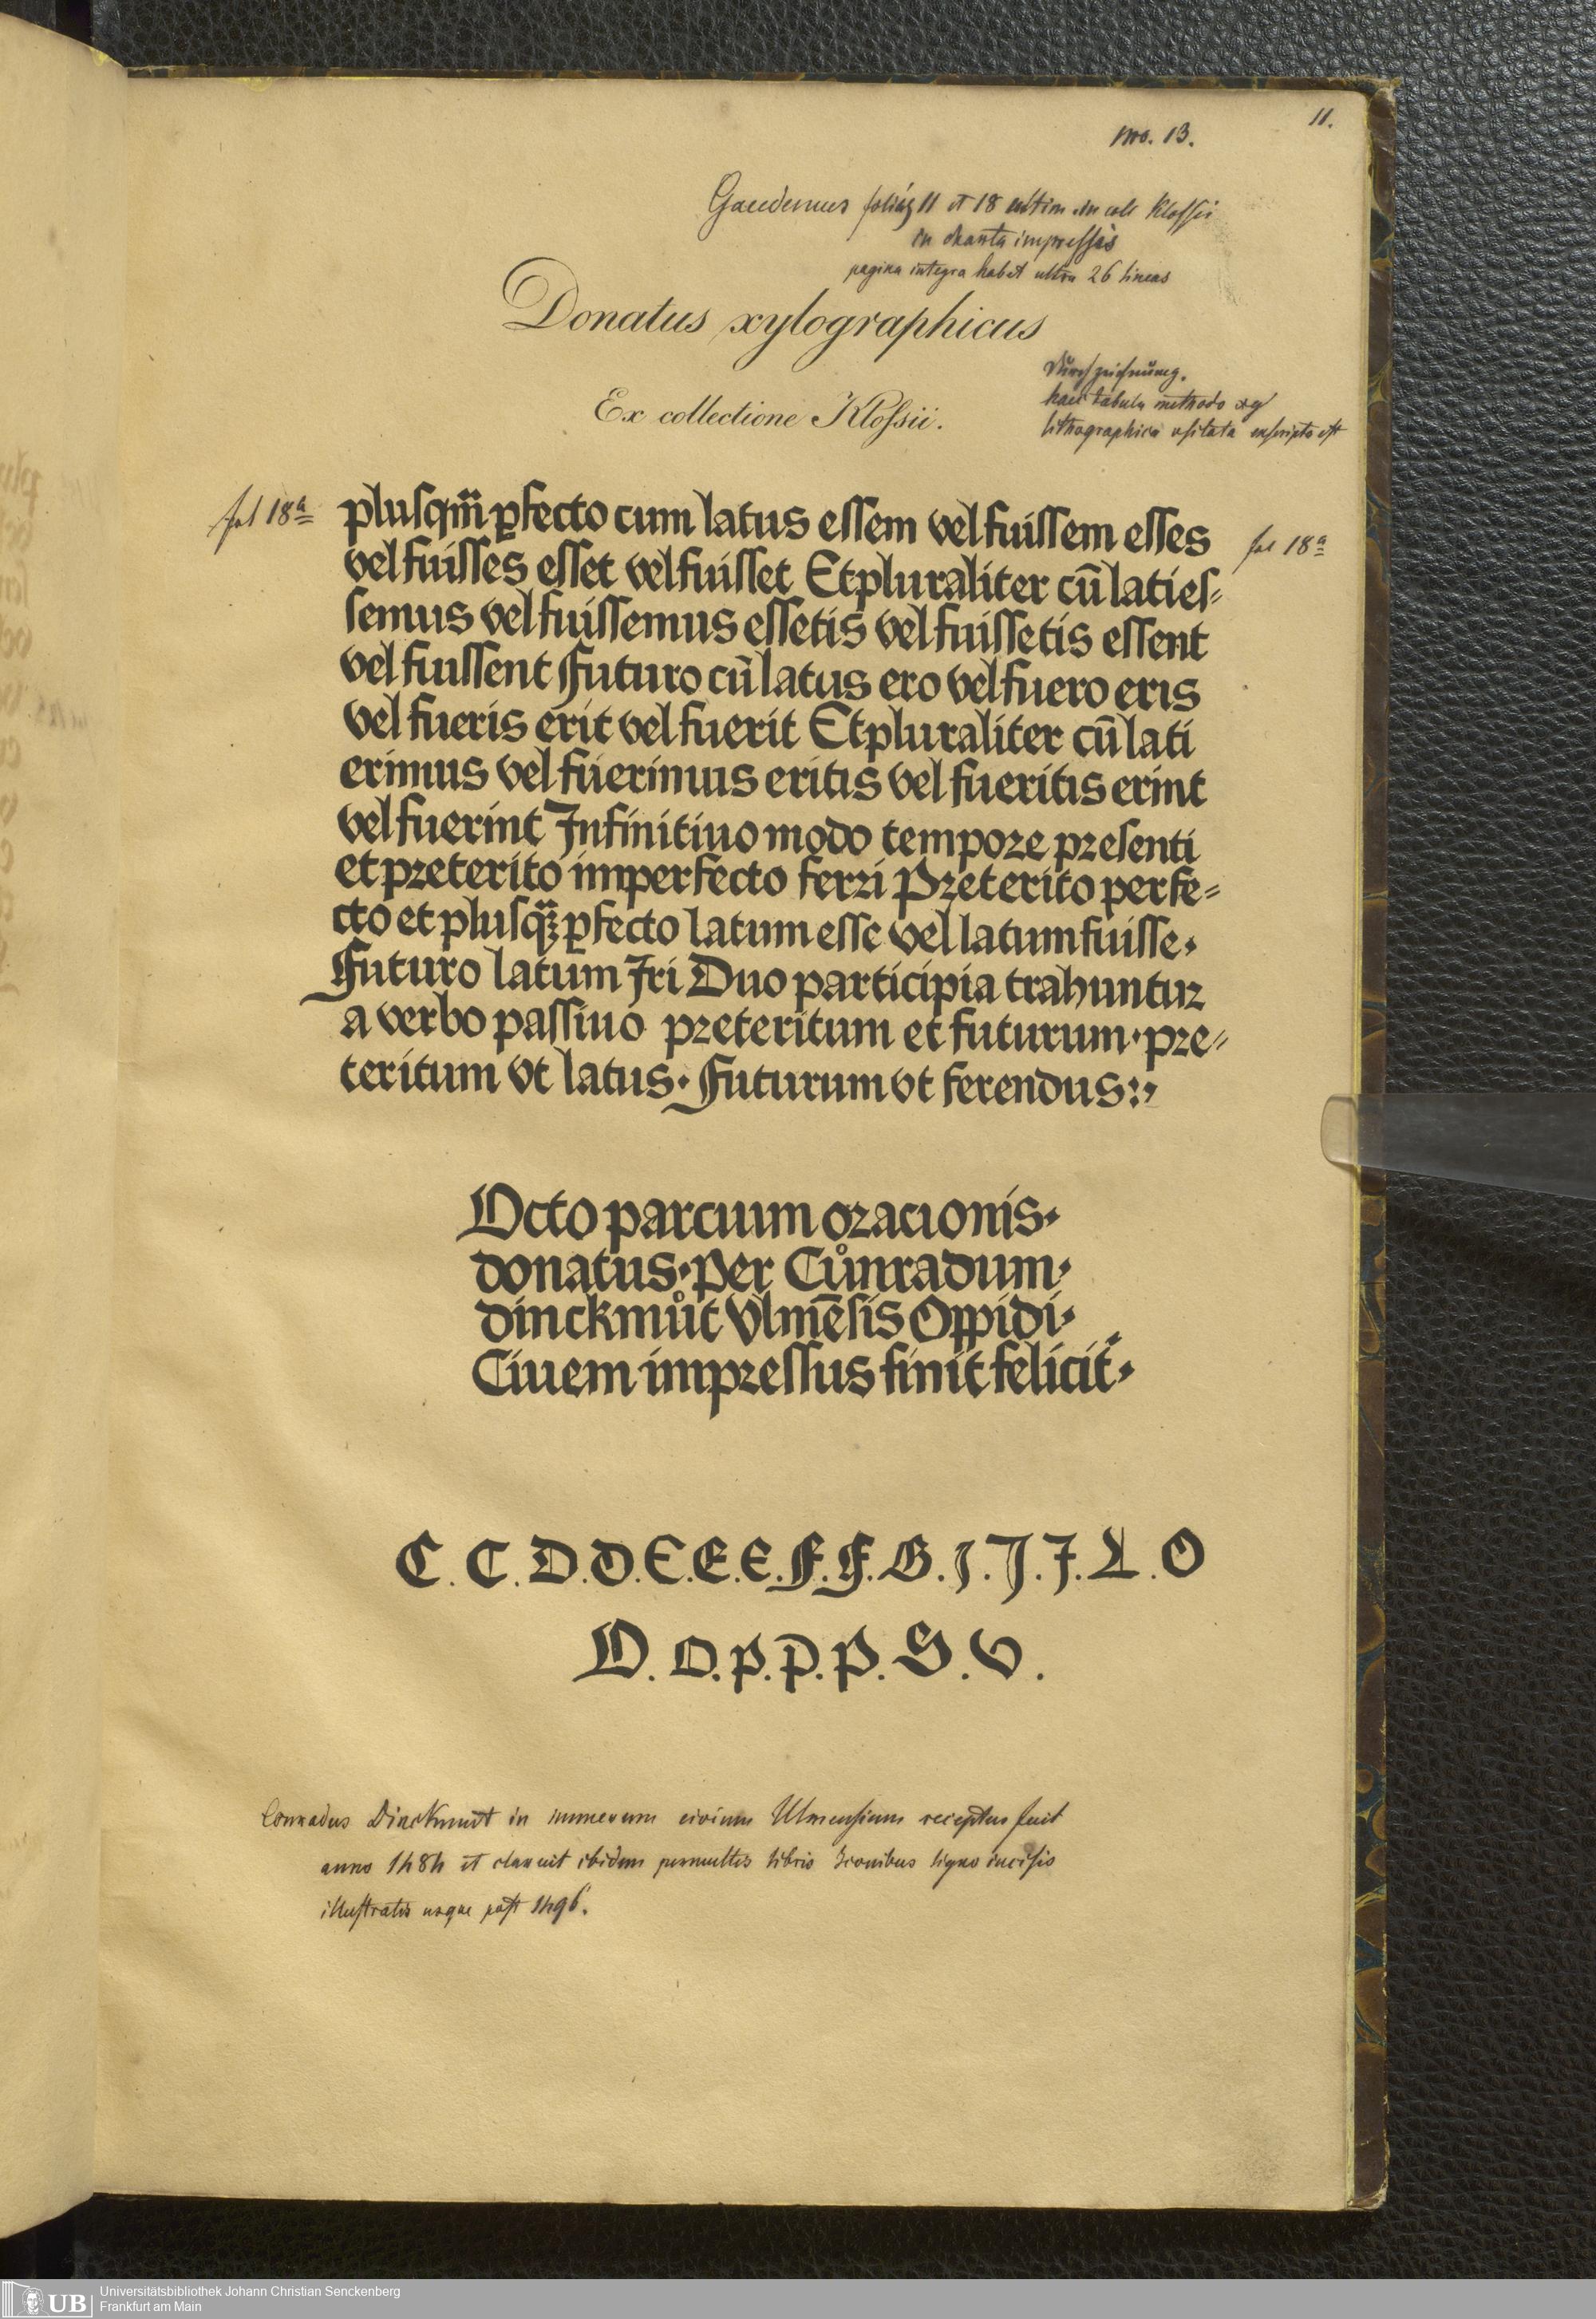 11.
no. 13.
Gaudemus foliis 11 et 18 ultim. in coll Klossii
in charta impressis
pagina integra habet ultra 26 lineas
Donatus xylographicus
Durchzeichnung.
haec tabula methodo
lithographica usitata exscripta est
Ex collectione Kloſsii.
fol 18a
plusqm̄ ꝑfecto cum latus eſſem vel fuiſſem eſſes
fol 18a
vel fuiſſes eſſet vel fuiſſet Et pluraliter cū lati eſ⸗
ſemus vel fuiſſemus eſſetis vel fuiſſetis eſſent
vel fuiſſent Futuro cū latus ero vel fuero eris
vel fueris erit vel fuerit Et pluraliter cū lati
erimus vel fuerimus eritis vel fueritis erint
vel fuerint Infinitiuo modo tempore preſenti
et preterito imperfecto ferri Preterito perfe⸗
cto et pluſqꝫ ꝑfecto latum eſſe vel latum fuiſſe·
Futuro latum Iri Duo participia trahuntur
a verbo paſſiuo preteritum et futurum· pre⸗
teritum vt latus· Futurum vt ferendus:·
Octo parcium oracionis·
donatus· Per Cůnradum·
dinckmůt Vlmēſis Oppidi·
Ciuem impreſſus finit felicit̄·
C. C. D. D. E. E. E. F. F. G. I. I. I. L. O
O. O. P. P. P. S. V.
Conradus Dinckmut in numerum civium Ulmensium receptus fuit
anno 1484 et claruit ibidem permultis libris Iconibus ligno incisis
illustratis usque post 1496.
UB
Universitätsbibliothek Johann Christian Senckenberg
Frankfurt am Main